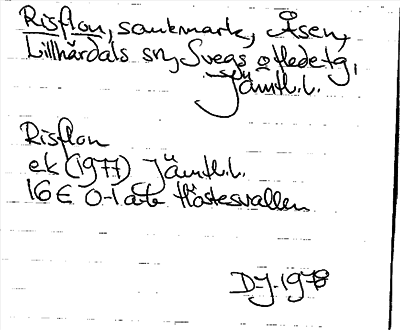 Risflon, sankmark, Åsen,
Lillhärdals sn, Svegs tg,
Jämtl.l.
Risflon
ek (1977) Jämtl.l.
16E 0-1 a-b Höstesvallen
D-J. 1978